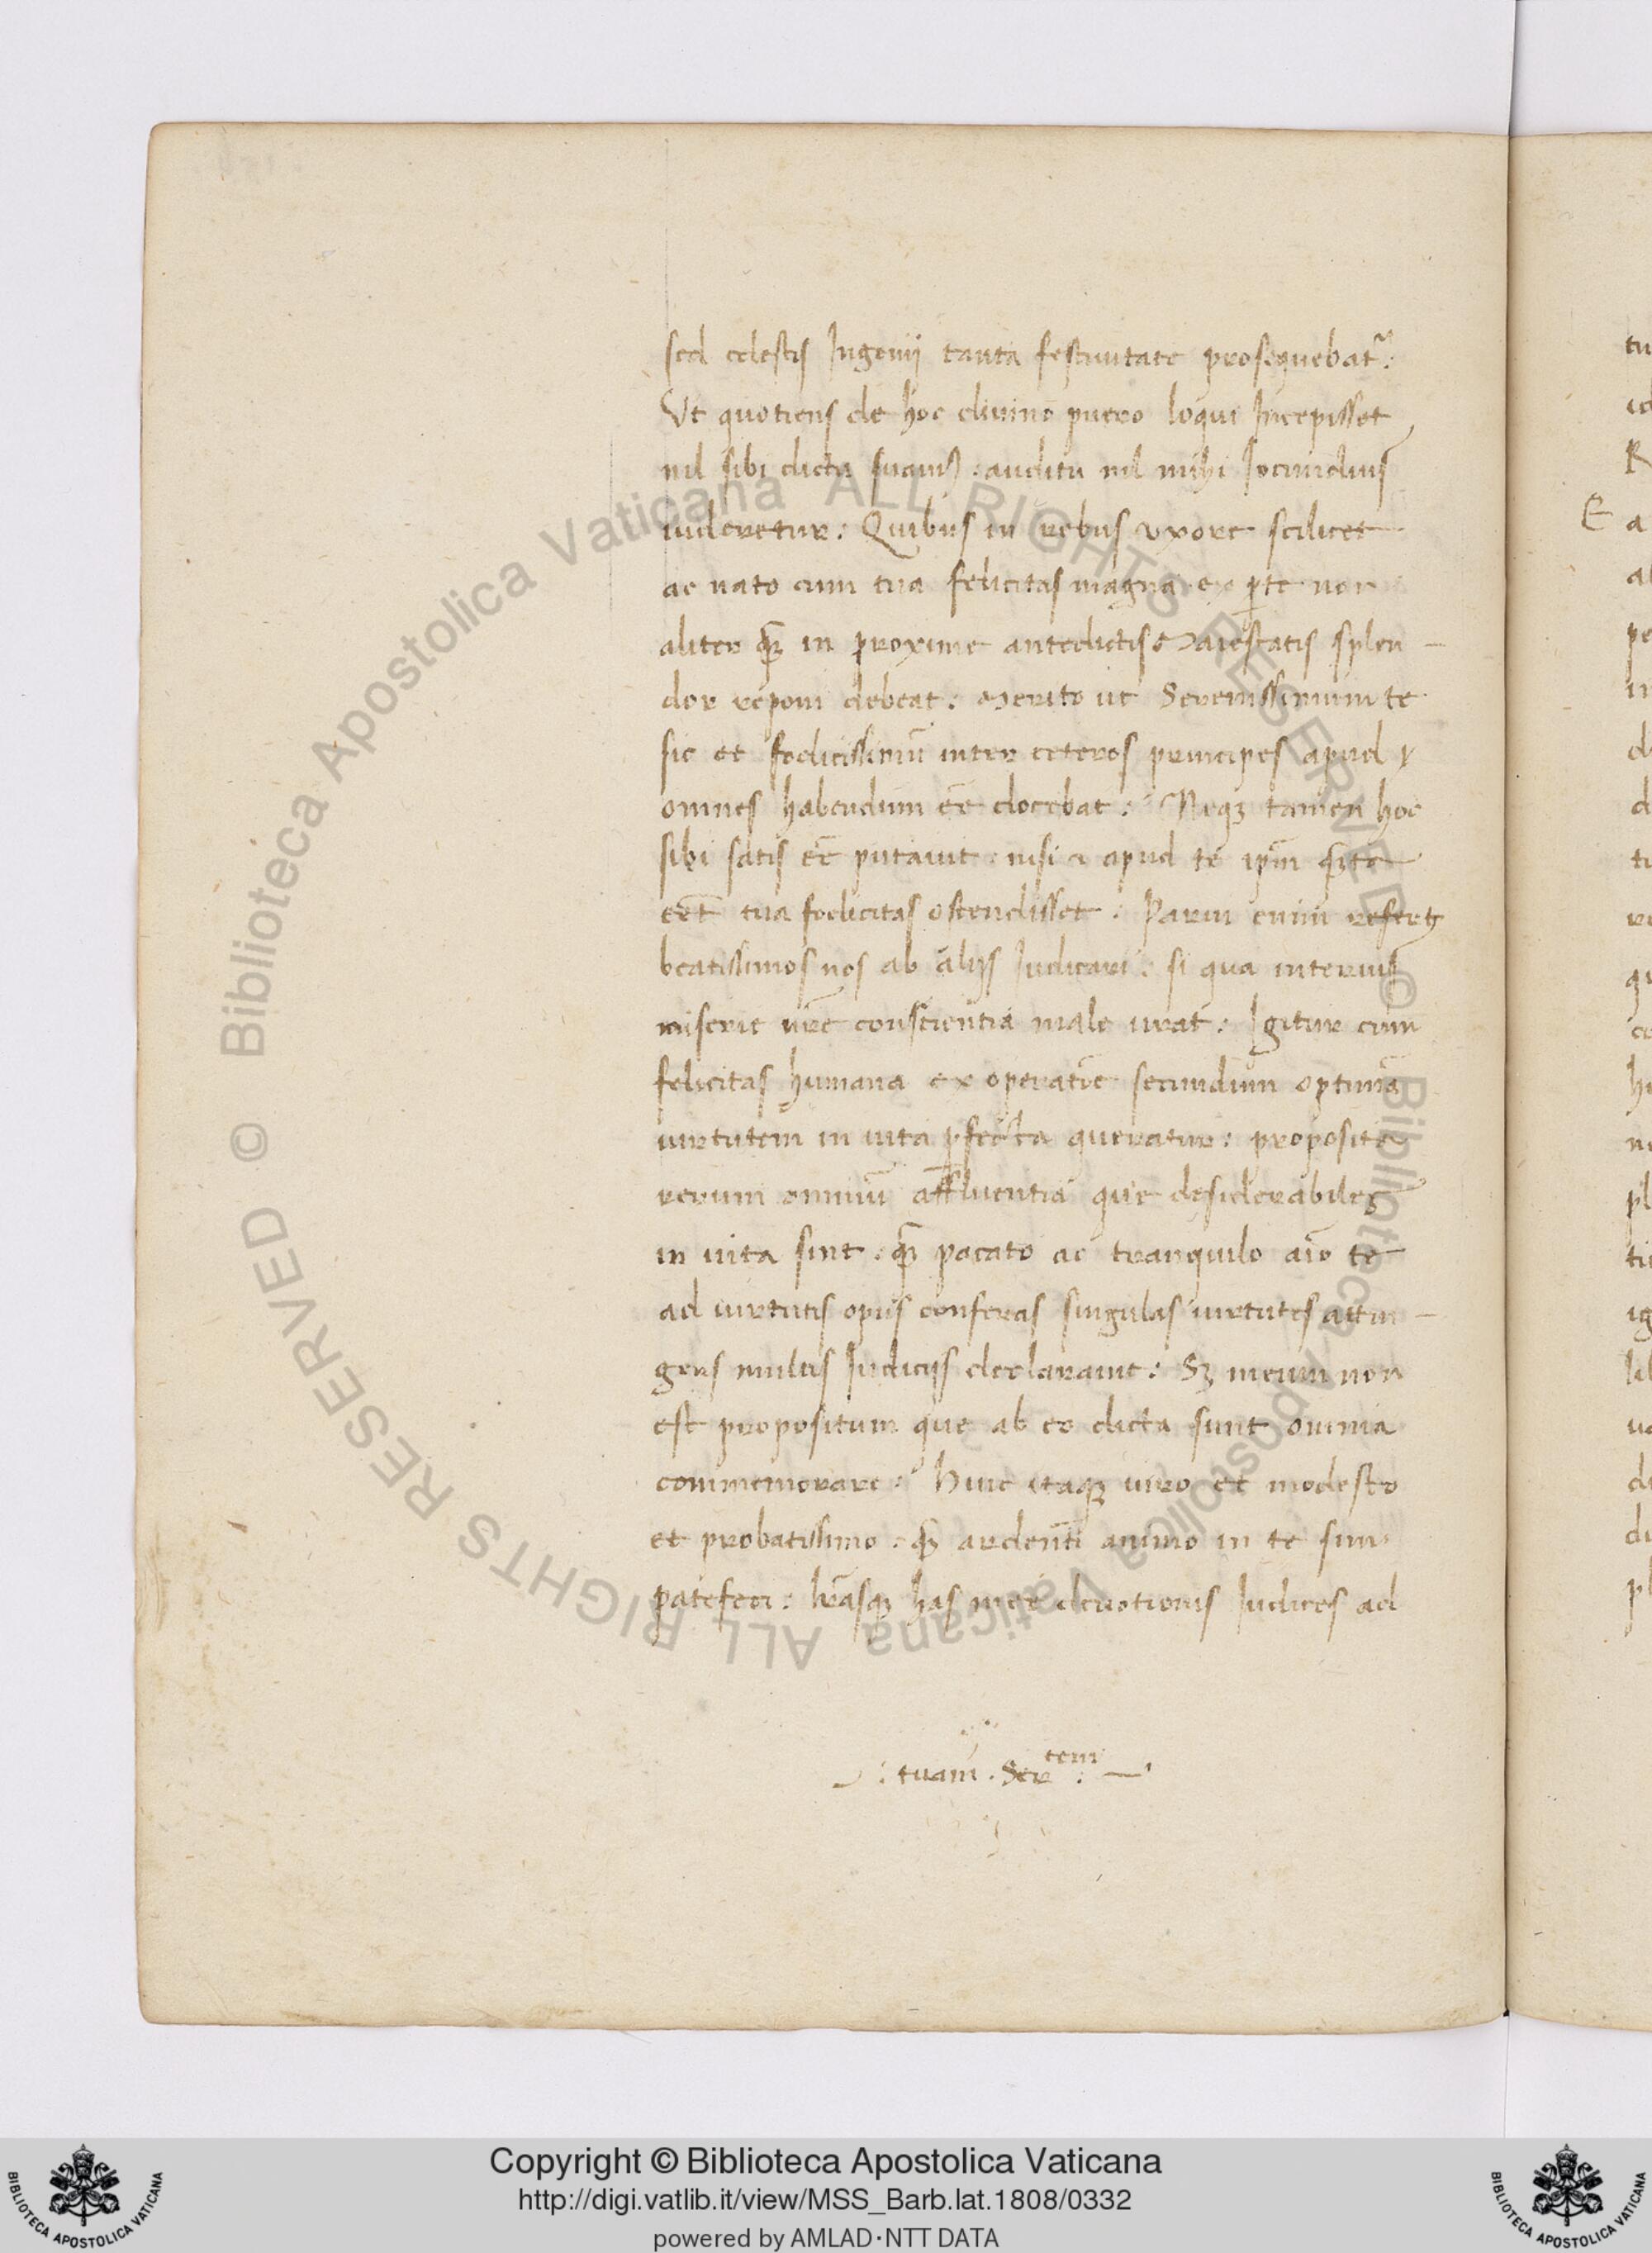 sed celestis Ingenij tanta festiuitate prosequebat᷑:
Vt quotiens de hoc diuino puero loqui Incepisset
nil sibi dictu suauiꝰ: auditu nil mihi Iocundius
uideretur: Quibus in rebus uxore scilicet
ac nato cum tua felicitas magna ex ꝑte non
aliter qꝫ in proxime antedictis Maiestatis splen-
dor reponi debeat: Merito ut Serenissimum te
sic et foelicissimū inter ceteros principes apud
omnes habendum eē docebat: Neqꝫ tamen hoc
sibi satis eē putauit: nisi & apud te ipm̄
eēt tua foelicitas ostendisset: Parui enim refert
beatissimos nos ab alijs Iudicari: si qua interius
miserie nrē conscientia male urat: Igitur cum
felicitas humana ex operatiōe secundum optimā
uirtutem in uita ꝑfecta queratur: proposita
rerum omniū affluentia que desiderabiles
in uita sint: qꝫ pacato ac tranquilo aīo te
ad uirtutis opus conferas singulas uirtutes attin-
gens multis Iudicijs declarauit: Sꝫ meum non
est propositum que ab eo dicta sunt omnia
commemorare: Huic itaqꝫ uiro et modesto
et probatissimo: qꝫ ardenti animo in te sim
patefeci: lr̄asqꝫ has mee deuotionis Iudices ad
: tuam. Ser tem :
E
Copyright © Biblioteca Apostolica Vaticana
http://digi.vatlib.it/view/MSS_Barb.lat.1808/0332
powered by AMLAD·NTT DATA
BIBLIOTECA APOSTOLICA VATICANA
BIBLIOTECA APOSTOLICA VATICANA
© Biblioteca Apostolica Vaticana ALL RIGHTS RESERVED
© Biblioteca Apostolica Vaticana ALL RIGHTS RESERVED